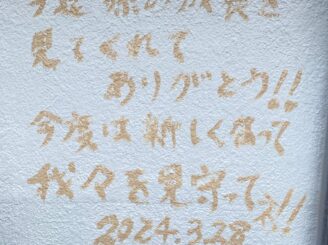 見てくれて
ありがとう!!
今度は新しく
我々を見守ってネ!!
2024.3.28